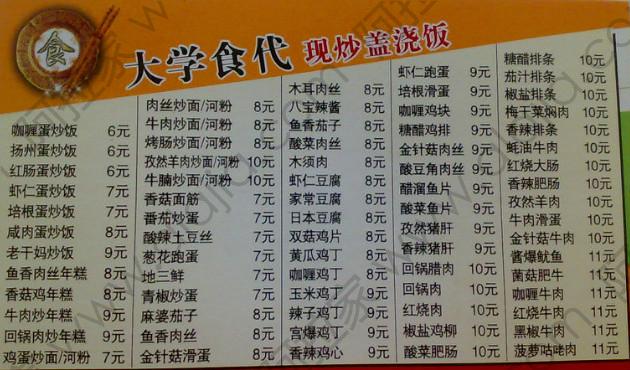 食
大学食代 现炒盖浇饭
咖喱蛋炒饭 6元
扬州蛋炒饭 6元
红肠蛋炒饭 6元
虾仁蛋炒饭 7元
培根蛋炒饭 7元
咸肉蛋炒饭 8元
老干妈炒饭 9元
鱼香肉丝年糕 8元
香菇鸡年糕 8元
牛肉炒年糕 9元
回锅肉炒年糕 9元
鸡蛋炒面/河粉 7元
肉丝炒面/河粉 8元
牛肉炒面/河粉 8元
烤肠炒面/河粉 8元
孜然羊肉炒面/河粉 10元
牛腩炒面/河粉 10元
香菇面筋 7元
番茄炒蛋 7元
酸辣土豆丝 7元
葱花跑蛋 7元
地三鲜 7元
青椒炒蛋 7元
麻婆茄子 8元
鱼香肉丝 8元
金针菇滑蛋 8元
木耳肉丝 8元
八宝辣酱 8元
鱼香茄子 8元
酸菜肉丝 8元
木须肉 8元
虾仁豆腐 8元
家常豆腐 8元
日本豆腐 8元
双菇鸡片 8元
黄瓜鸡丁 8元
咖喱鸡丁 8元
玉米鸡丁 9元
辣子鸡丁 9元
宫爆鸡丁 9元
香辣鸡心 9元
虾仁跑蛋 9元
培根滑蛋 9元
咖喱鸡块 9元
糖醋鸡排 9元
金针菇肉丝 9元
酸豆角肉丝 9元
醋溜鱼片 9元
酸菜鱼片 9元
孜然猪肝 9元
香辣猪肝 9元
回锅腊肉 10元
回锅肉 10元
红烧肉 10元
椒盐鸡柳 10元
酸菜肥肠 10元
糖醋排条 10元
茄汁排条 10元
椒盐排条 10元
梅干菜焖肉 10元
香辣排条 10元
蚝油牛肉 10元
红烧大肠 10元
香辣肥肠 10元
孜然羊肉 10元
牛肉滑蛋 10元
金针菇牛肉 10元
酱爆鱿鱼 11元
菌菇肥牛 11元
咖喱牛肉 11元
红烧牛肉 11元
黑椒牛肉 11元
菠萝咕咾肉 11元